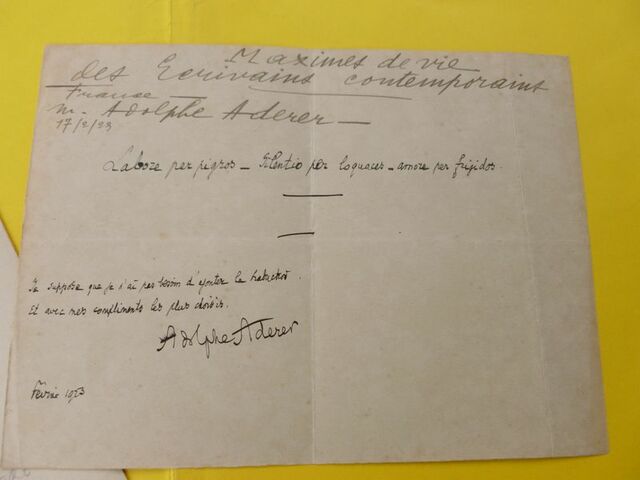 Maximes de vie
des Ecrivains contemporains
France —
M. Adolphe Aderer —
17/2/23
Labore per pigros _ Silentio per loquaces _ amore per frigidos.
Je suppose que je n'ai pas besoin d'ajouter la traduction.
Et avec mes compliments les plus choisis.
Adolphe Aderer
Février 1923